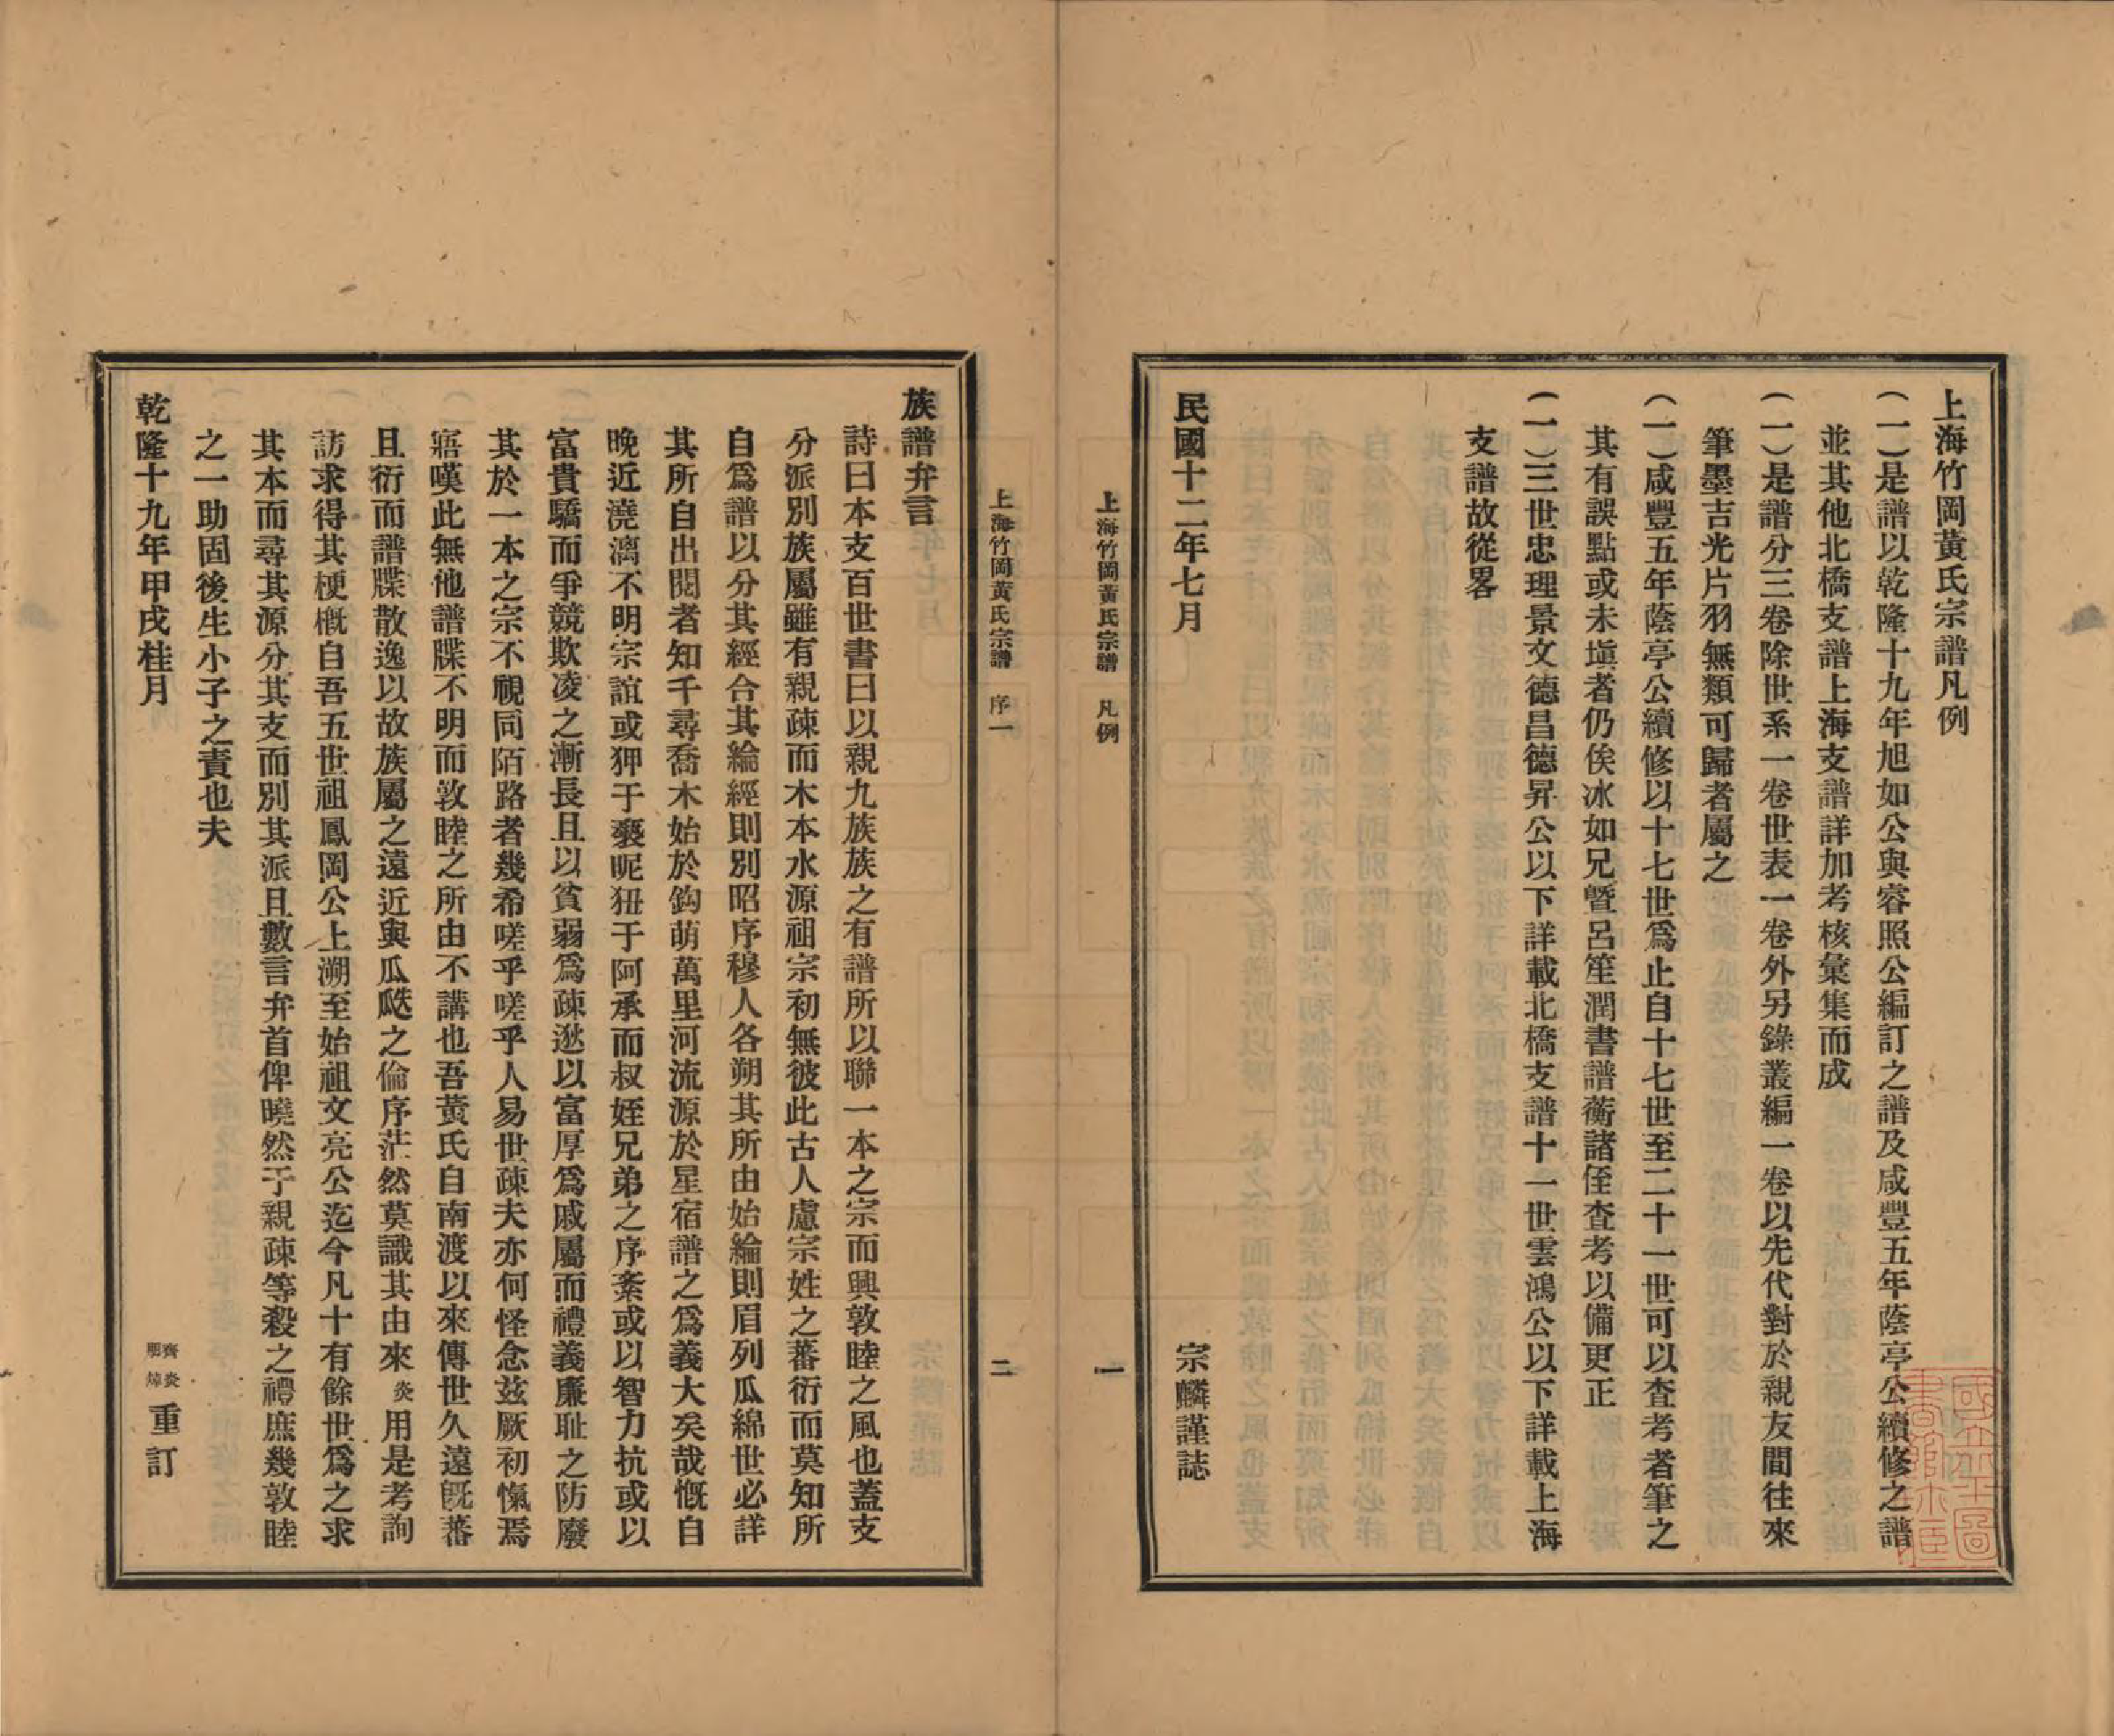 上海竹岡黃氏宗譜凡例
（一）是譜以乾隆十九年旭如公與睿照公編訂之譜及咸豐五年蔭亭公續修之譜
並其他北橋支譜上海支譜詳加考核彙集而成
（一）是譜分三卷除世系一卷世表一卷外另錄叢編一卷以先代對於親友間往來
筆墨吉光片羽無類可歸者屬之
（一）咸豐五年蔭亭公續修以十七世爲止自十七世至二十一世可以查考者筆之
其有誤點或未塡者仍俟冰如兄暨呂笙潤書譜蘅諸侄查考以備更正
（一）三世忠理景文德昌德昇公以下詳載北橋支譜十一世雲鴻公以下詳載上海
支譜故從畧
民國十二年七月　宗麟謹誌
上海竹岡黃氏宗譜　凡例　一
上海竹岡黃氏宗譜　序一　二
族譜弁言
詩曰本支百世書曰以親九族族之有譜所以聯一本之宗而興敦睦之風也蓋支
分派別族屬雖有親疎而木本水源祖宗初無彼此古人慮宗姓之蕃衍而莫知所
自爲譜以分其經合其綸經則別昭序穆人各朔其所由始綸則眉列瓜綿世必詳
其所自出閱者知千尋喬木始於鈎萌萬里河流源於星宿譜之爲義大矣哉慨自
晚近澆漓不明宗誼或狎于褻昵狃于阿承而叔姪兄弟之序紊或以智力抗或以
富貴驕而爭競欺凌之漸長且以貧弱爲疎逖以富厚爲戚屬而禮義廉耻之防廢
其於一本之宗不覗同陌路者幾希嗟乎嗟乎人易世疎夫亦何怪念玆厥初愾焉
寤嘆此無他譜牒不明而敦睦之所由不講也吾黃氏自南渡以來傳世久遠旣蕃
且衍而譜牒散逸以故族屬之遠近與瓜瓞之倫序茫然莫識其由來炎用是考詢
訪求得其梗槪自吾五世祖鳳岡公上溯至始祖文亮公迄今凡十有餘世爲之求
其本而尋其源分其支而別其派且數言弁首俾曉然于親疎等殺之禮庶幾敦睦
之一助固後生小子之責也夫
乾隆十九年甲戌桂月　重訂